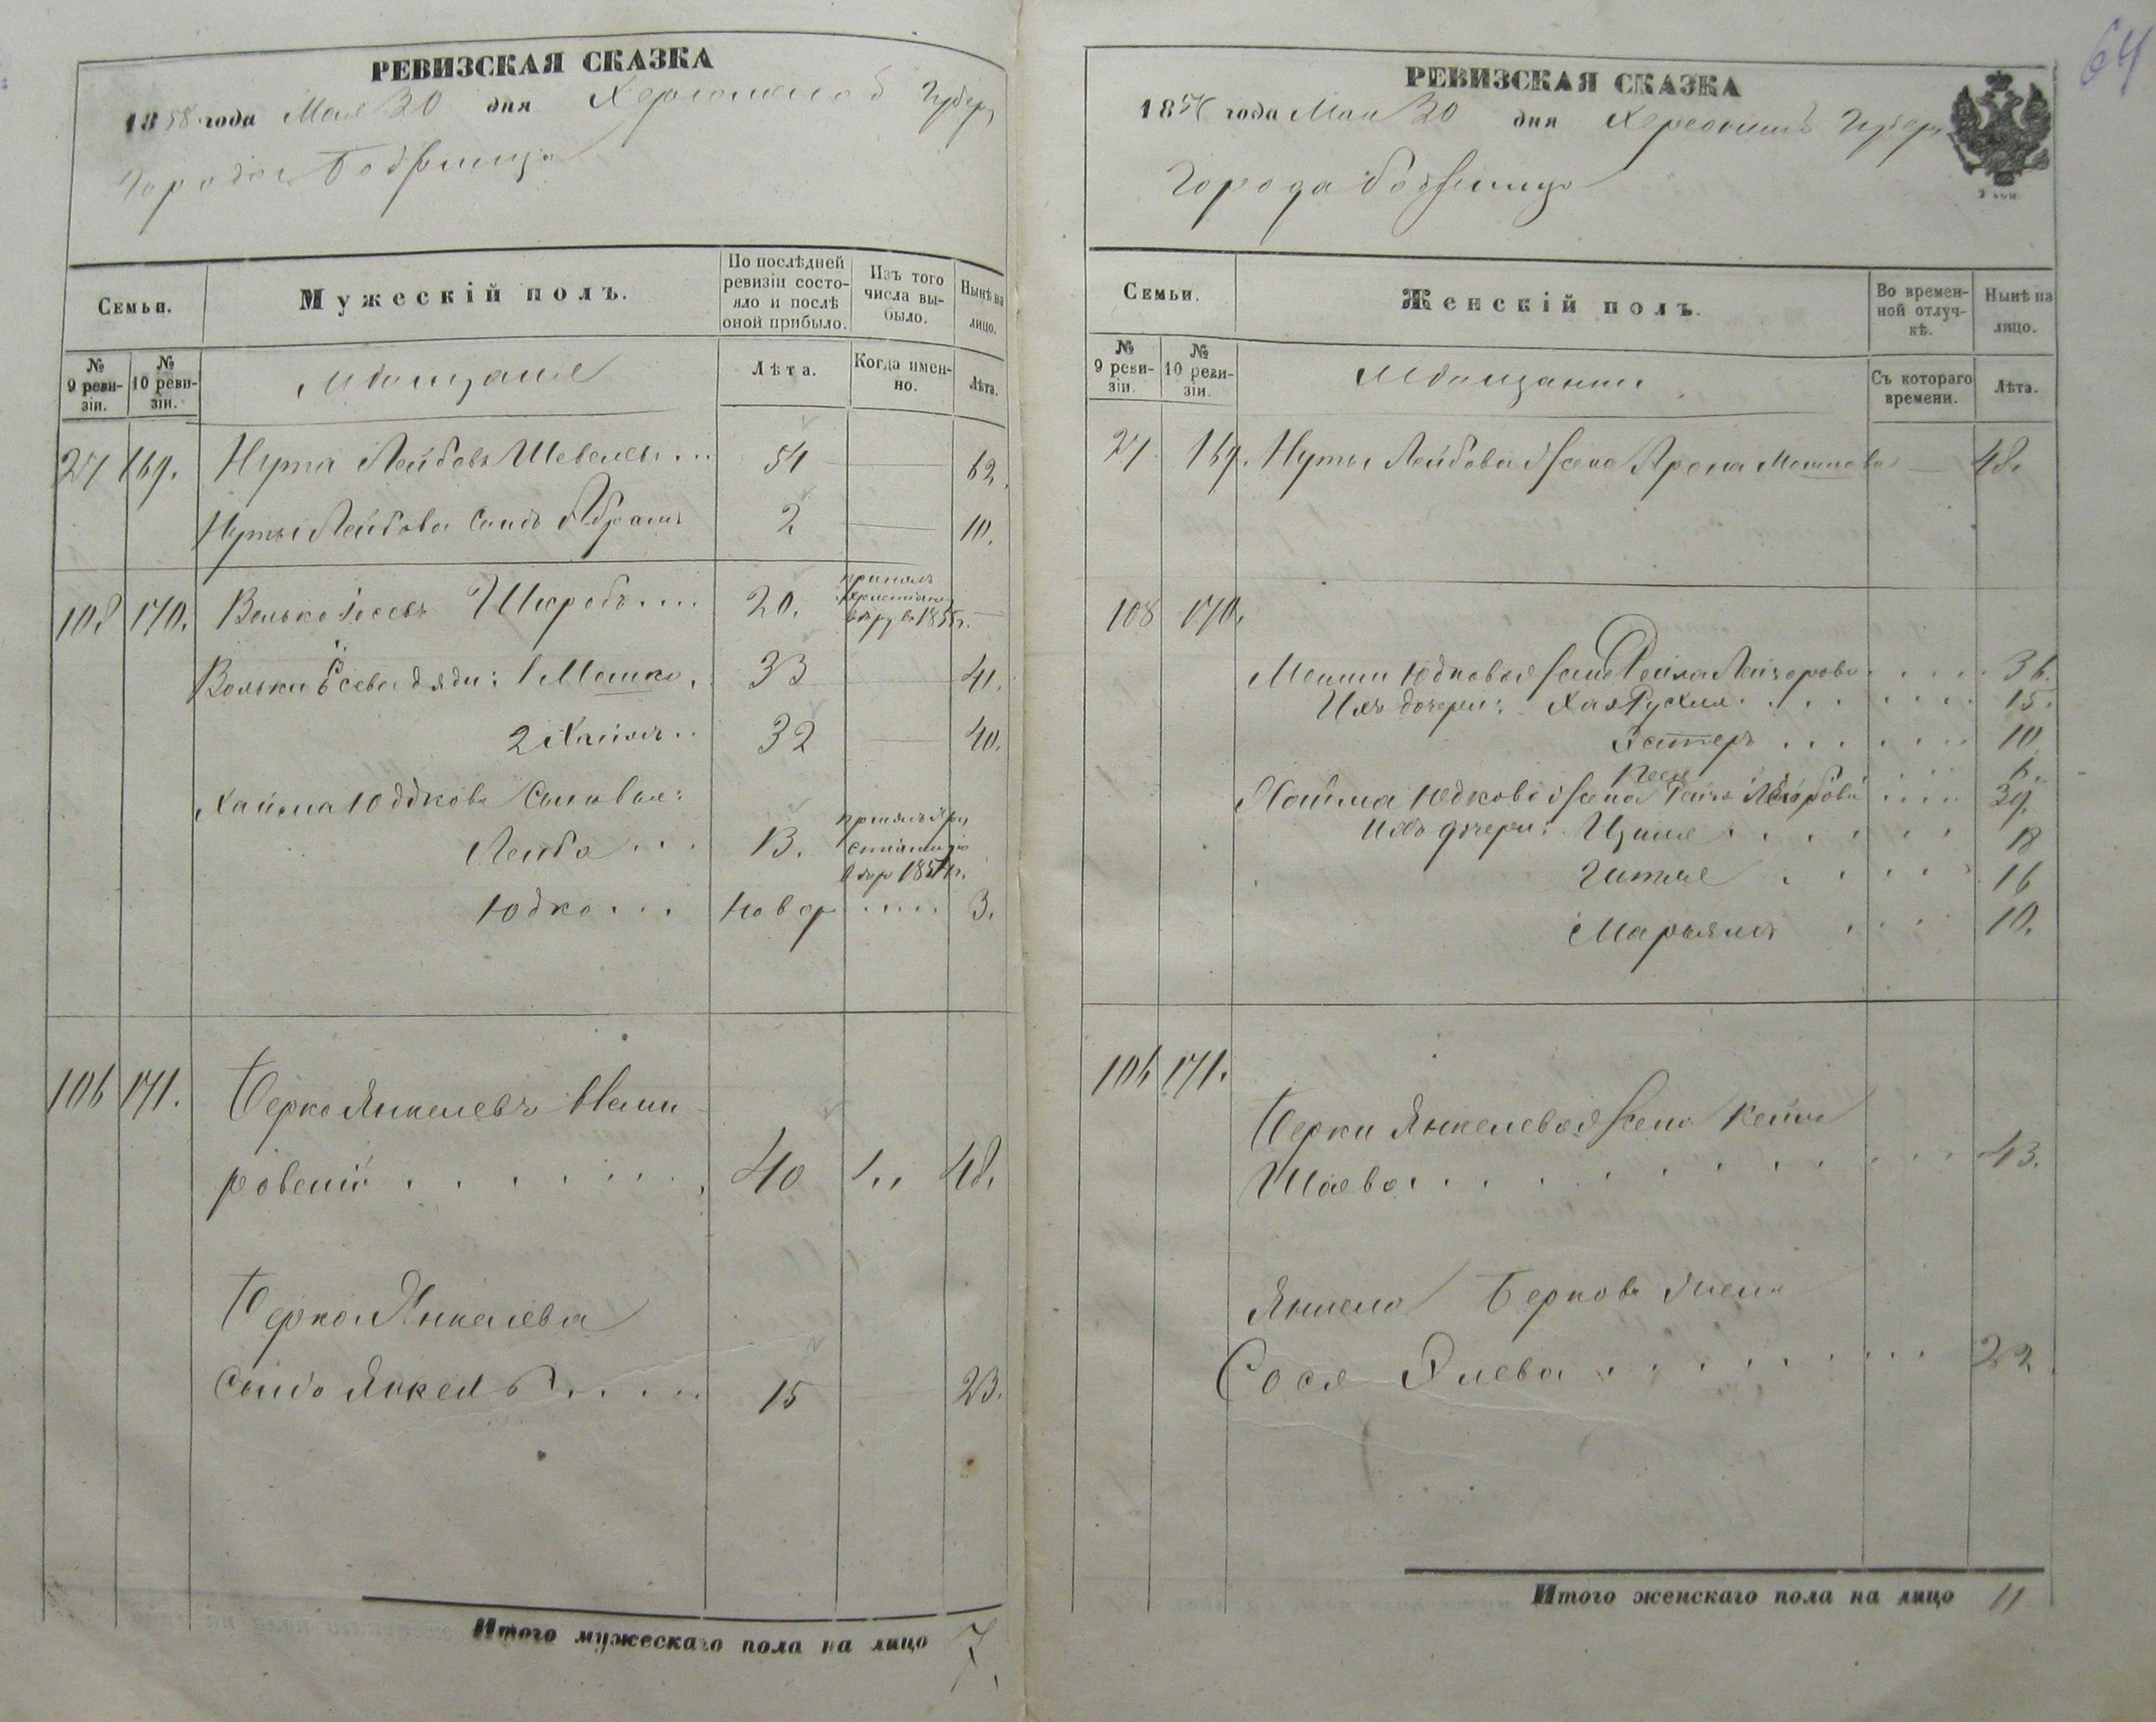 64
РЕВИЗСКАЯ СКАЗКА
1858 года Мая 30 дня Херсонской Губер
Города Бобринца
Семьи.
Мужескій полъ.
По послѣдней ревизіи состояло и послѣ оной прибыло.
Изъ того числа выбыло.
Нынѣ на лицо.
№ 9 ревизіи.
№ 10 ревизіи.
Мѣщане
Лѣта.
Когда именно.
Лѣта.
27 169. Нута Лейбовъ Шевелевъ ... 54 62.
Нуты Лейбова сынъ Абрамъ 2 10.
108 170. Волько Іосевъ Шкробъ .... 20. принялъ христіан вѣру въ 185 г.
Волька Ёсева дяди: 1 Мошко. 33 41.
2 Хаимъ .. 32 40.
Хаима Юдкова сыновья:
Лейба ... 13. принялъ христіанскую вѣру 185 г.
Юдко ... новор ..... 3.
106 171. Берко Янкелевъ Немировскій ....... 40 48.
Берка Янкелева
сынъ Янкель ..... 15 23.
Итого мужескаго пола на лицо 7.
РЕВИЗСКАЯ СКАЗКА
1858 года Мая 30 дня Херсонской Губер
Города Бобринца
2 коп
Семьи.
Женскій полъ.
Во временной отлучкѣ.
Нынѣ на лицо.
№ 9 ревизіи.
№ 10 ревизіи.
Мѣщанки
Съ котораго времени.
Лѣта.
27 169. Нуты Лейбова жена Мошкова 48.
108 170.
Мошки Юдкова жена Лейзорова ..... 36.
Ихъ дочери: Хая Рухля ....... 15.
Эстеръ ...... 10
Песя 6.
Хаима Юдкова жена ..... 39.
Ихъ дочери: Ципа ...... 18
Гитля ..... 16
Марьямъ .... 10.
106 171.
Берки Янкелева жена Кейла
Шаева .......... 43.
Янкеля Беркова жена
Сося ......... 22
Итого женскаго пола на лицо 11